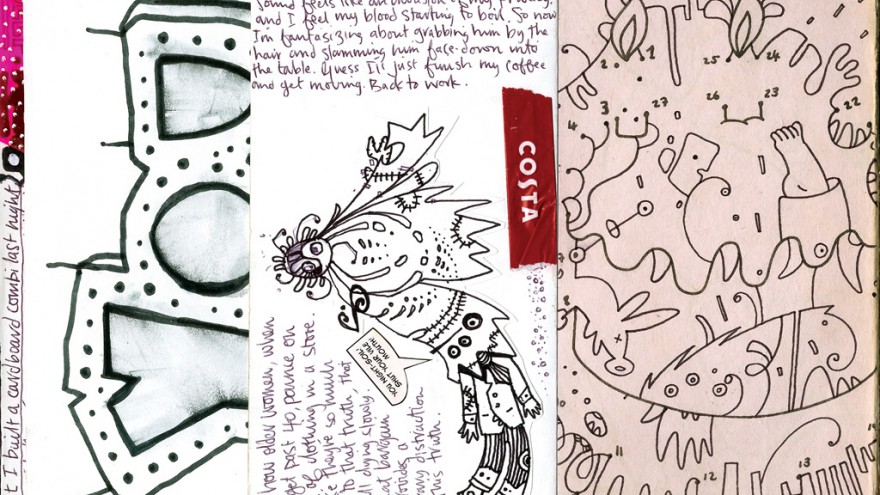 t I built a cardboard combi last night
and I feel my blood starting to boil. So now
I'm fantasizing about grabbing him by the
hair and slamming him face-down into
the table. Guess I'll just finish my coffee
and get moving. Back to work.
COSTA
YOU NIGHT-SOIL
SHUT YOUR VILE
MOUTH
how older women, when
get past 40, pounce on
of clothing in a store.
they're so much
to that truth, that
ll dying slowly.
at bargain
ovides a
any distraction
this truth.
2
1
25
24
3
27
26
23
4
22
11
12
13